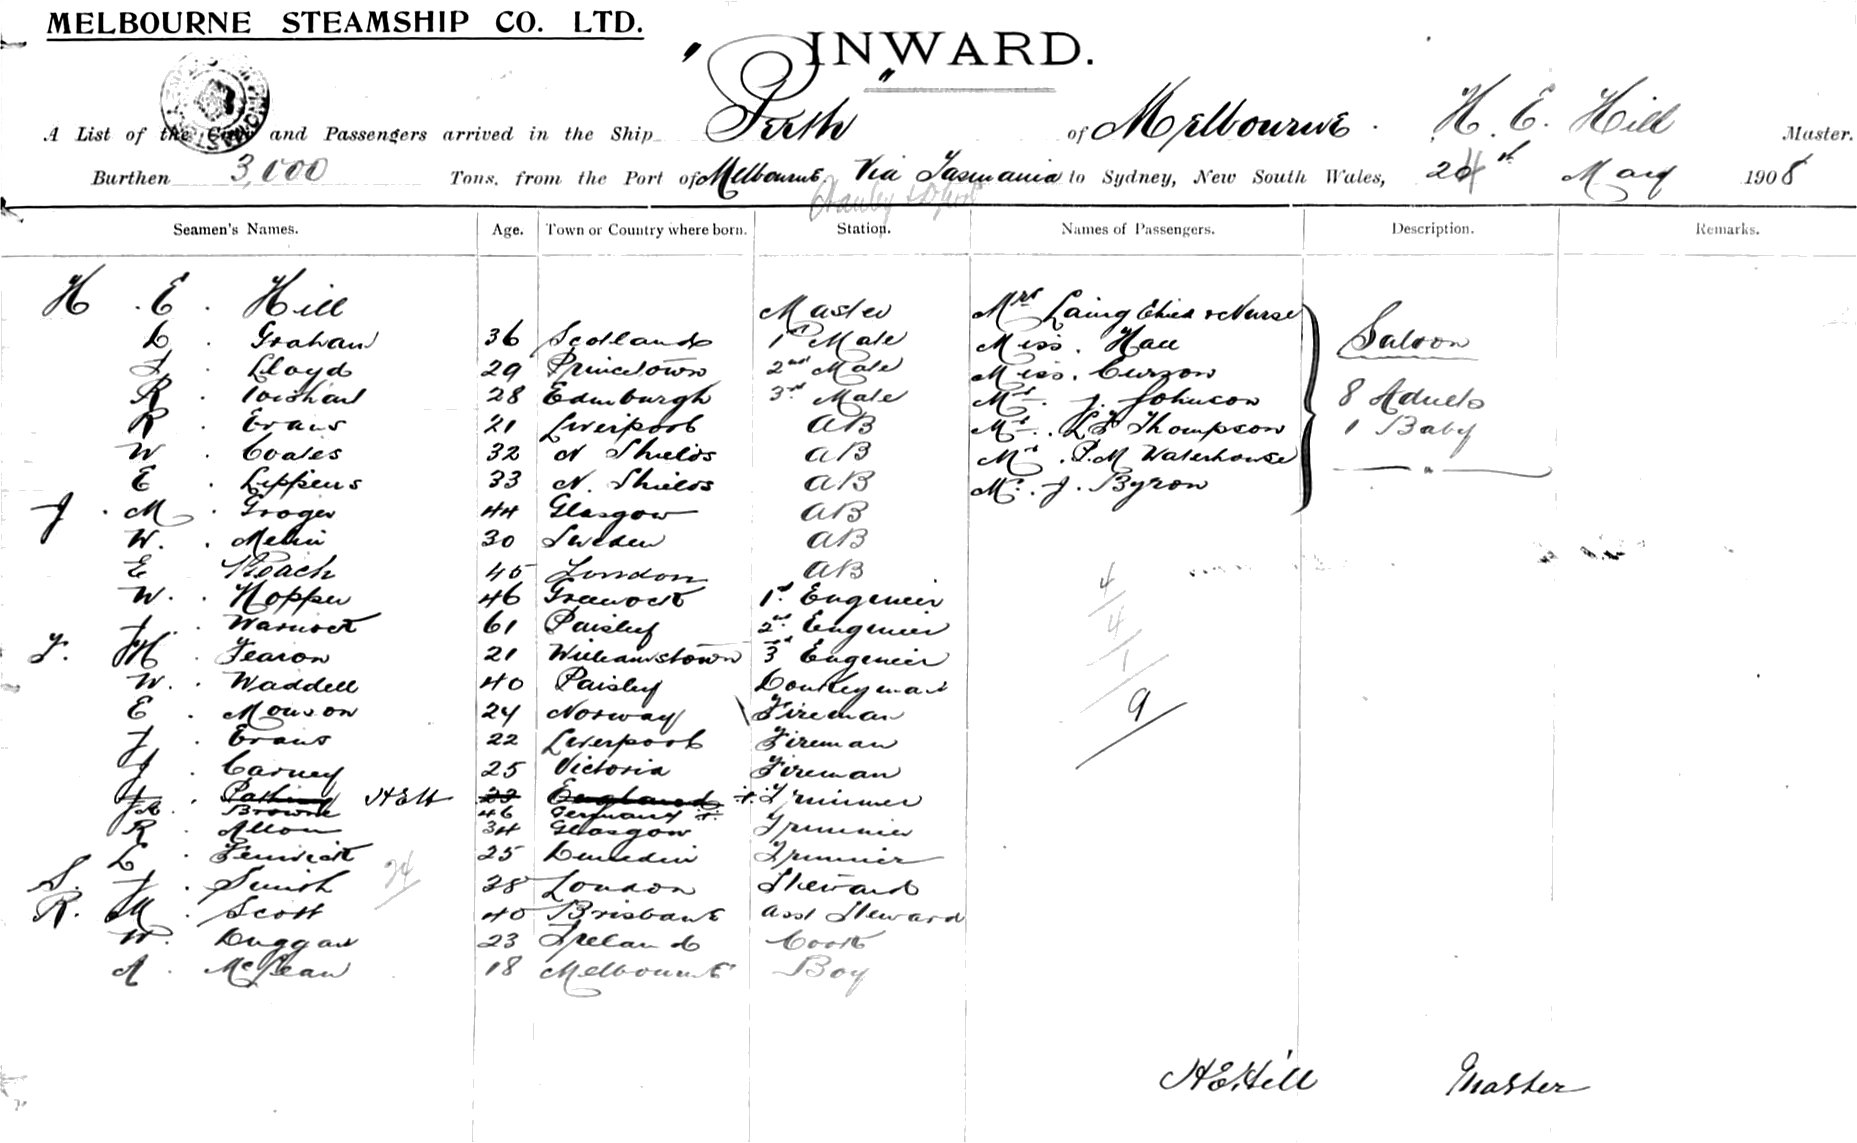 MELBOURNE STEAMSHIP CO. LTD.
INWARD.
A List of the Crew and Passengers arrived in the Ship "Perth" of Melbourne. H. E. Hill Master.
Burthen 3,000 Tons, from the Port of Melbourne Via Tasmania to Sydney, New South Wales, 24th May 1908
Seamen's Names. Age. Town or Country where born. Station. Names of Passengers. Description. Remarks.
H. E. Hill Master Mrs Laing Child & Nurse
D. Graham 36 Scotland 1st Mate Miss. Hall Saloon
Lloyd 29 Princetown 2nd Mate Miss. Curzon
R. 28 Edinburgh 3rd Mate Mr. J. Johnson 8 Adults
R. Evans 21 Liverpool AB Mr. Thompson 1 Baby
W. Coates 32 N Shields AB Mr. P.M Waterhouse
E. Lippens 33 N. Shields AB Mr. J. Byron
J. M. Groger 44 Glasgow AB
W. Melin 30 Sweden AB
E Roach 45 London AB
W. Hopper 46 Greenock 1st Engineer
J. Warnock 61 Paisley 2nd Engineer
H. Fearon 21 Williamstown 3rd Engineer
W. Waddell 40 Paisley Donkeyman
E. Monson 24 Norway Fireman
J. Evans 22 Liverpool Fireman
J. Carney 25 Victoria Fireman
HEH 23 England Trimmer
Browne 46 Germany
R. Allon 34 Glasgow Trimmer
L. Fenwick 25 Dunedin Trimmer
S. J. Smith 38 London Steward
R. M. Scott 40 Brisbane Asst Steward
W. Duggan 23 Ireland Cook
A. McLean 18 Melbourne Boy
4
4
1
9
24
H.E.Hill Master